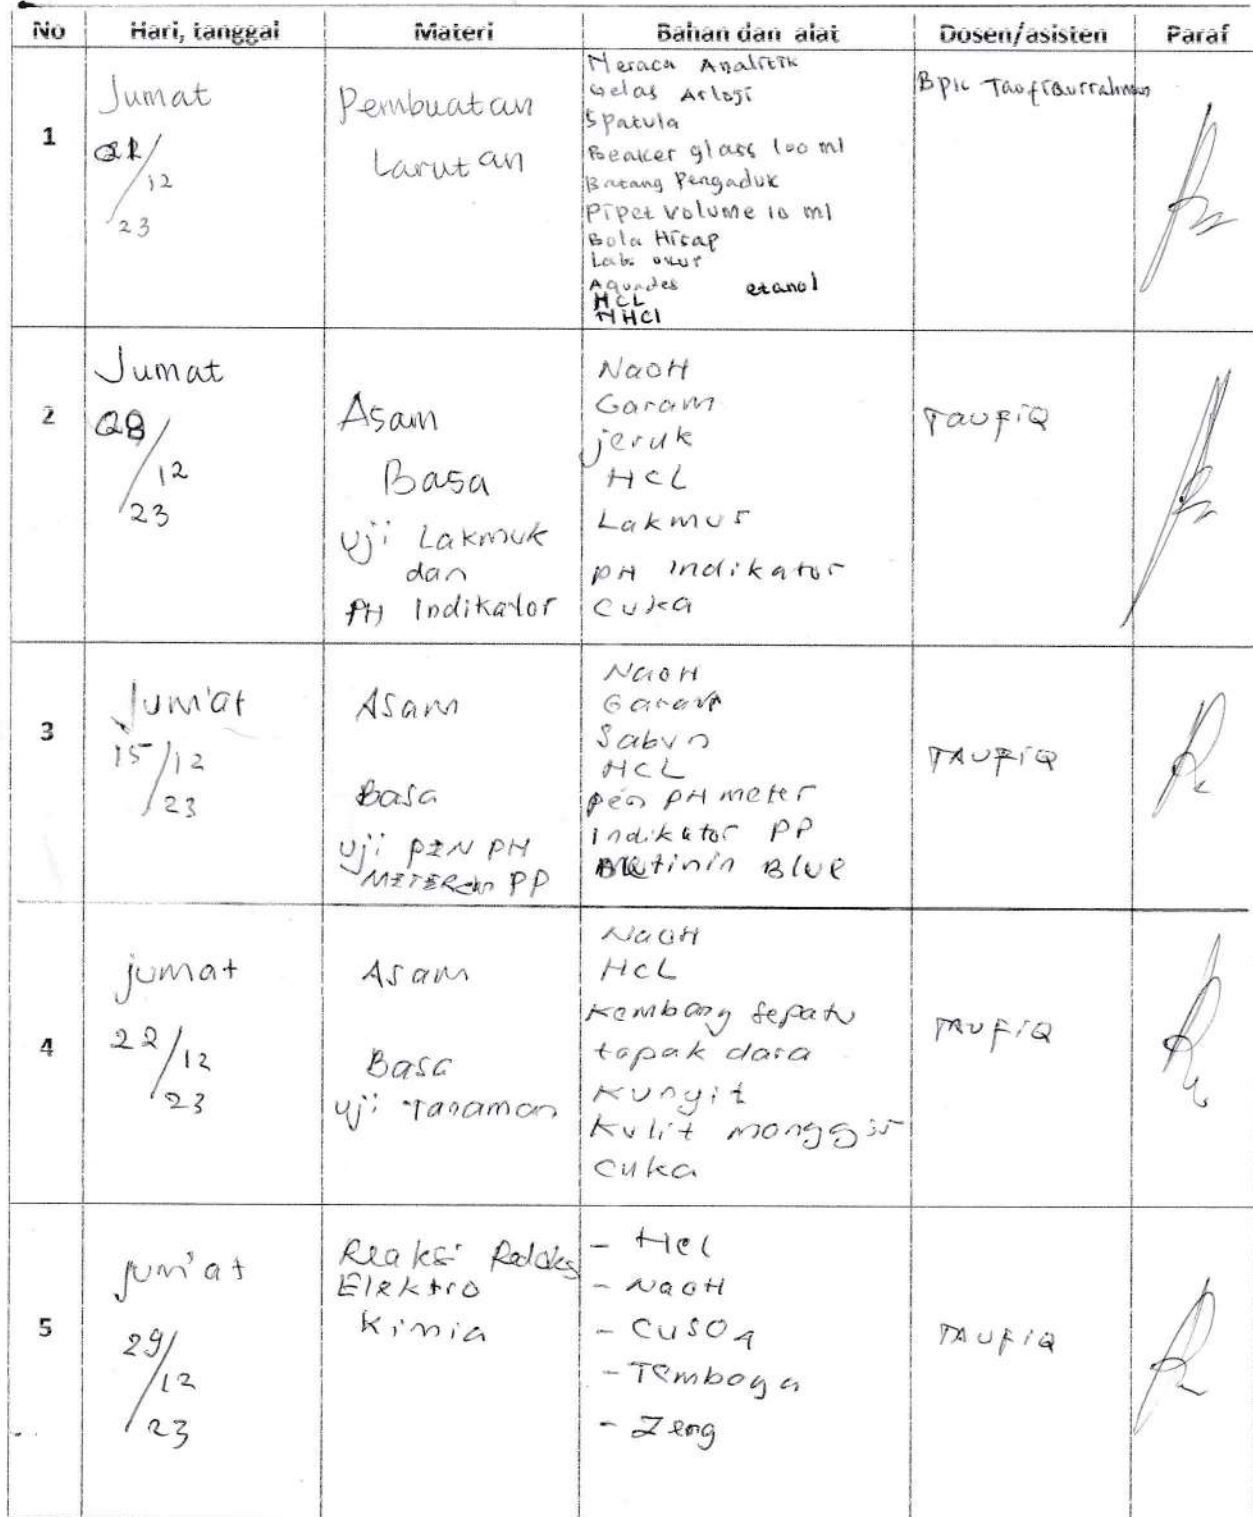 No Hari, tanggal Materi Bahan dan alat Dosen/asisten Paraf
1
Jumat
/12
23
Pembuatan
Larutan
Neraca Analitik
Gelas Arloji
Spatula
Beaker glass 100 ml
Batang Pengaduk
Pipet Volume 10 ml
Bola Hisap
Labu ukur
Aquades etanol
HCL
Bpk Taufiqurrahman
2
Jumat
08/
12
23
Asam
Basa
Uji Lakmuk
dan
PH Indikator
NaOH
Garam
jeruk
HCL
Lakmus
PH indikator
Cuka
TAUFIQ
3
Jum'at
15/12
23
Asam
Basa
Uji PEN PH
METERdan PP
NaOH
Garam
Sabun
HCL
pen PH meter
indikator PP
Blue
TAUFIQ
4
jumat
22/12
23
Asam
Basa
Uji Tanaman
NaOH
HCL
Kembang Sepatu
tapak dara
Kunyit
Kulit manggis
Cuka
TAUFIQ
5
jum'at
29/
12
23
Reaksi Redoks
Elektro
Kimia
- Hcl
- NaOH
- CuSO4
- Tembaga
- Zeng
TAUFIQ